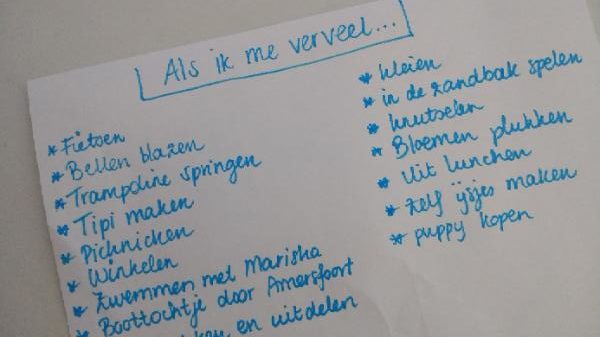 Als ik me verveel...
* Fietsen
* Bellen blazen
* Trampoline springen
* Tipi maken
* Picknicken
* Winkelen
* Zwemmen met Marisha
* Boottochtje door Amersfoort
en uitdelen
* kleien
* in de zandbak spelen
* knutselen
* Bloemen plukken
* Uit lunchen
* Zelf ijsjes maken
* puppy kopen